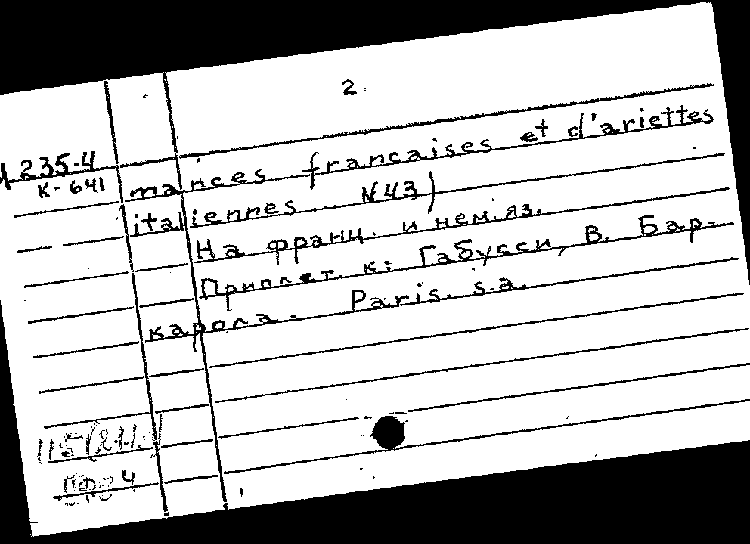 2.
235-4
K-641
mances francaises et d'ariettes
italiennes... N43)
На франц. и нем.яз.
Приплет. к: Габусси, В. Бар-
карола. Paris. s.a.
115(2
4